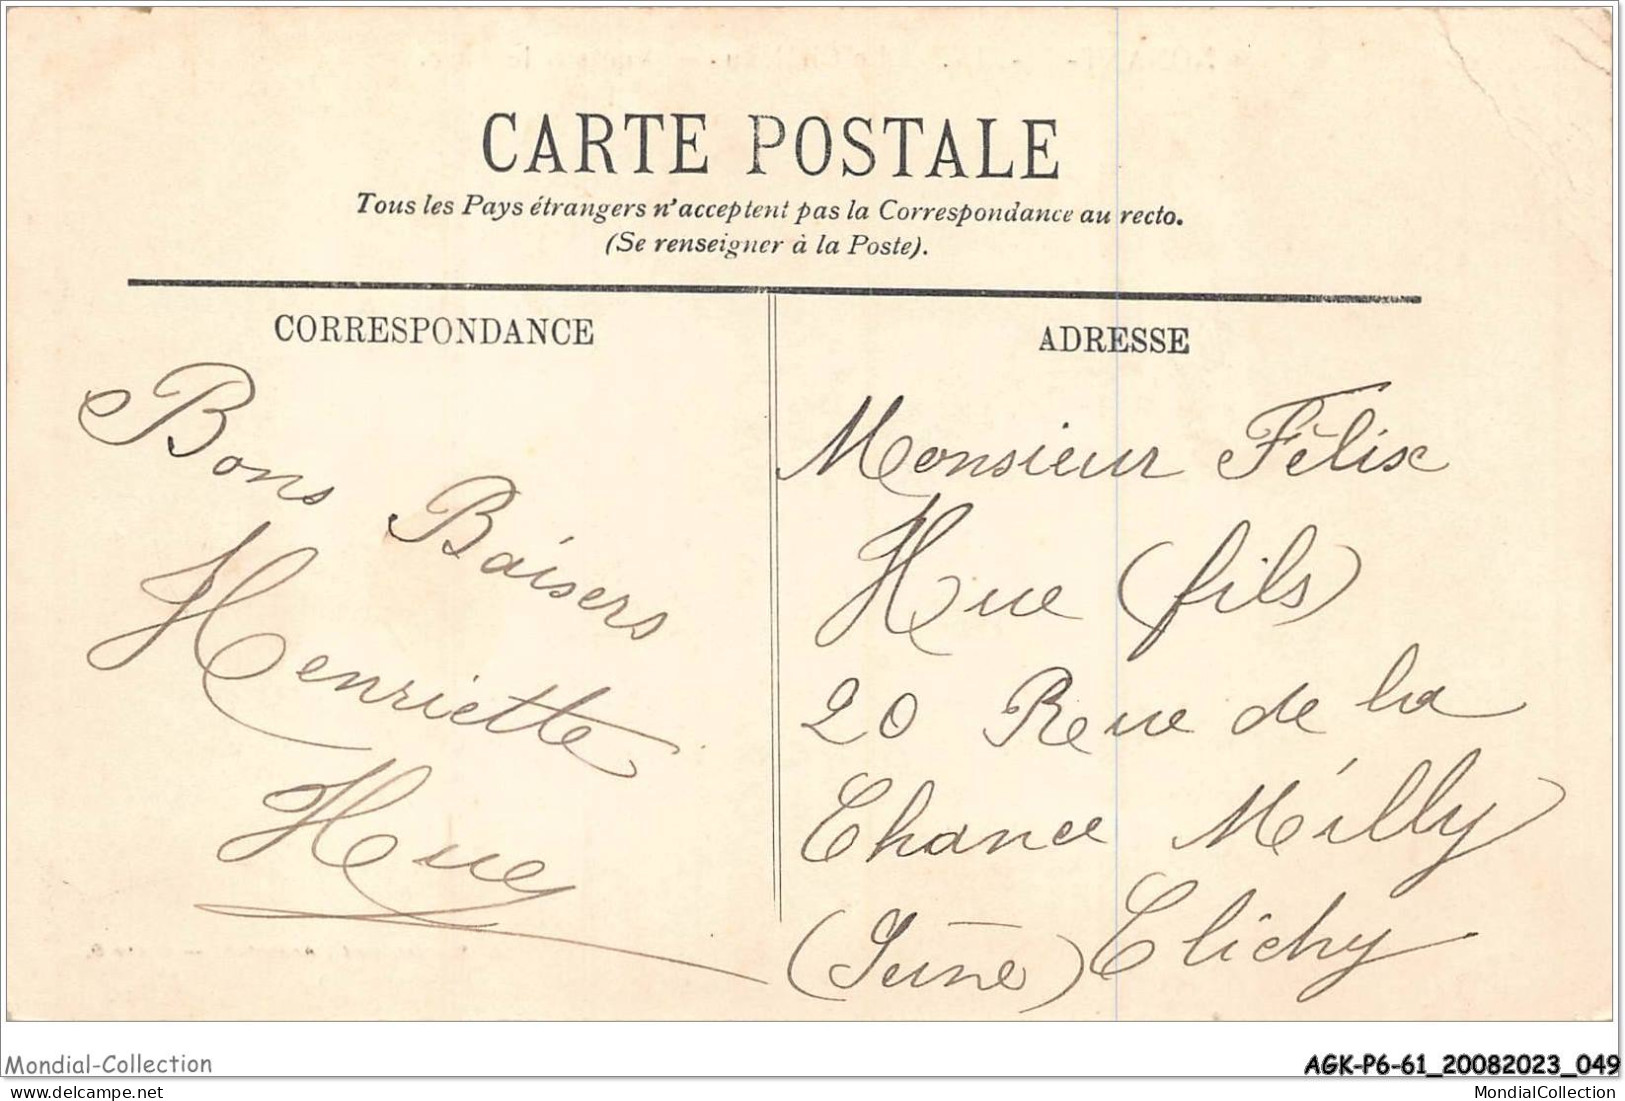 CARTE POSTALE
Tous les Pays étrangers n'acceptent pas la Correspondance au recto.
(Se renseigner à la Poste).
CORRESPONDANCE
Bons Baisers
Henriette
Hue
ADRESSE
Monsieur Félix
Hue (fils)
20 Rue de la
Chance Milly
(Seine) Clichy
Mondial-Collection
AGK-P6-61_20082023_049
delcampe.net
MondialCollection